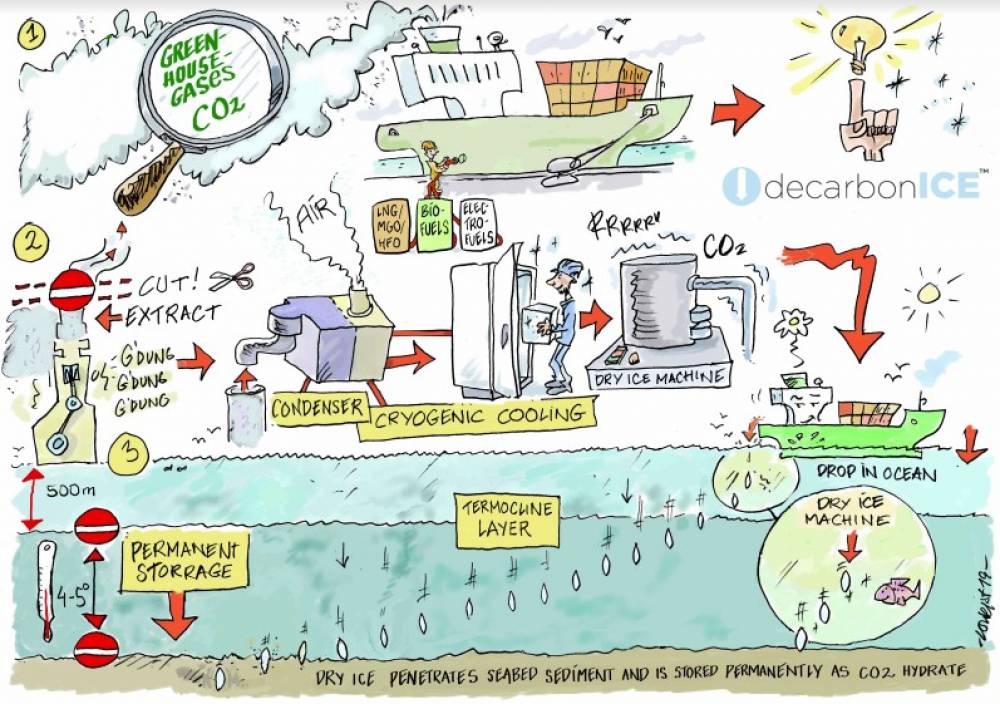 1
GREEN-
HOUSE
GASES
CO2
decarbonICE™
LNG/
MGO/
HFO
BIO-
FUELS
ELEC-
TRO-
FUELS
2
CUT!
EXTRACT
G'DUNG
G'DUNG
G'DUNG
AIR
CONDENSER
CRYOGENIC COOLING
RRRRRR
CO2
DRY ICE MACHINE
3
500m
DROP IN OCEAN
DRY ICE
MACHINE
TERMOCLINE
LAYER
PERMANENT
STORRAGE
4-5°
DRY ICE PENETRATES SEABED SEDIMENT AND IS STORED PERMANENTLY AS CO2 HYDRATE